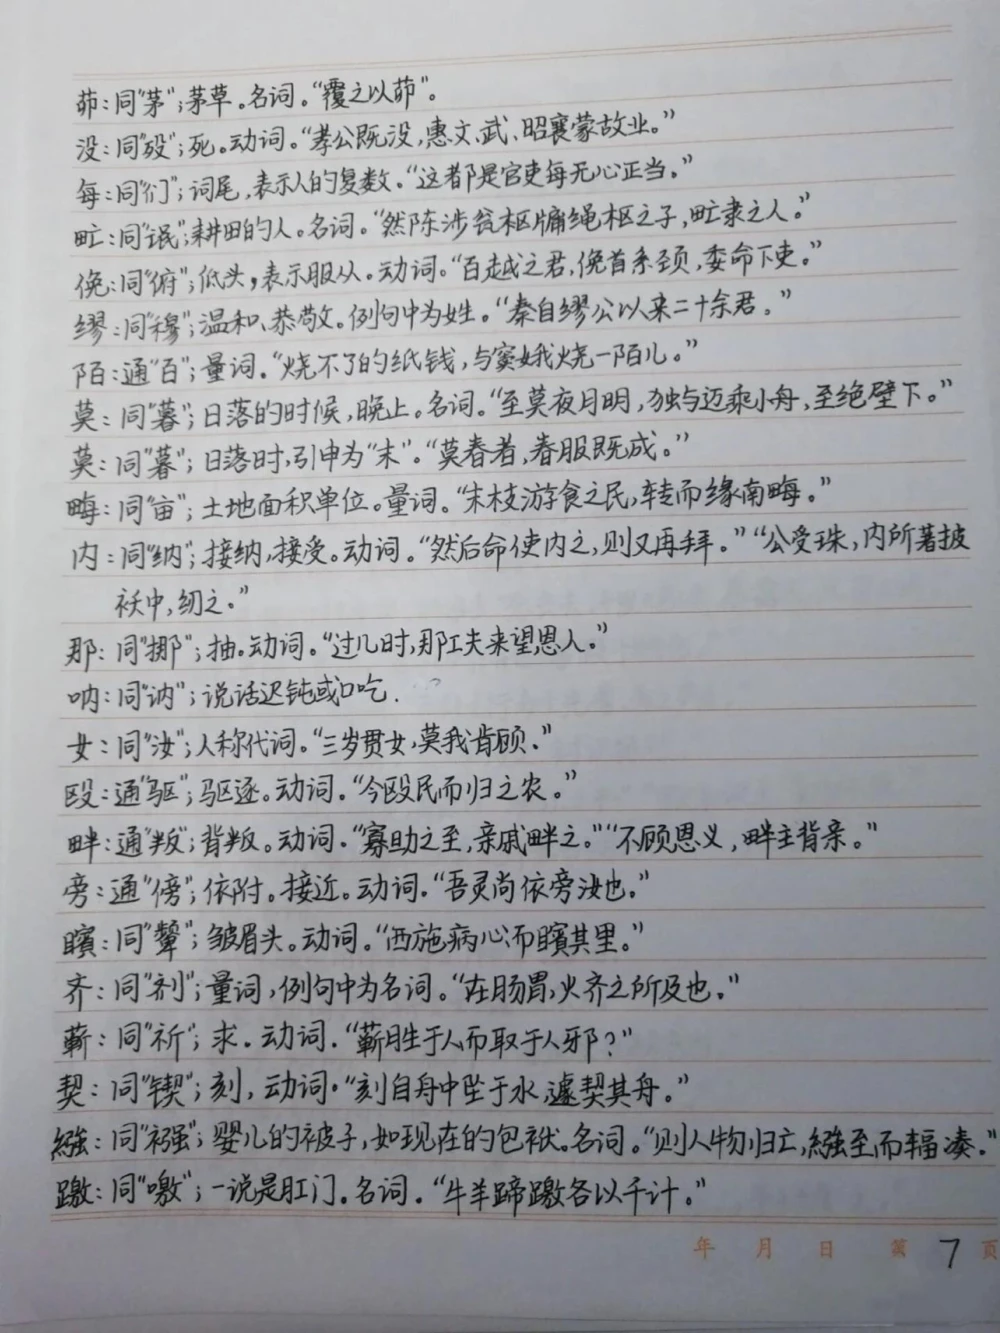 茆：同“茅”；茅草。名词。“覆之以茆”。
没：同“殁”；死。动词。“孝公既没，惠文、武、昭襄蒙故业。”
每：同“们”；词尾，表示人的复数。“这都是官吏每无心正当。”
甿：同“氓”；耕田的人。名词。“然陈涉瓮枢牖绳枢之子，甿隶之人。”
俛：同“俯”；低头，表示服从。动词。“百越之君，俛首系颈，委命下吏。”
缪：同“穆”；温和、恭敬。例句中为姓。“秦自缪公以来二十余君。”
陌：通“百”；量词。“烧不了的纸钱，与窦娥烧一陌儿。”
莫：同“暮”；日落的时候，晚上。名词。“至莫夜月明，独与迈乘小舟，至绝壁下。”
莫：同“暮”；日落时，引申为“末”。“莫春者，春服既成。”
畮：同“亩”；土地面积单位。量词。“末枝游食之民，转而缘南畮。”
内：同“纳”；接纳，接受。动词。“然后命使内之，则又再拜。”“公受珠，内所著披
袄中，纫之。”
那：同“挪”；抽。动词。“过几时，那工夫来望恩人。”
呐：同“讷”；说话迟钝或口吃.
女：同“汝”；人称代词。“三岁贯女，莫我肯顾。”
殴：通“驱”；驱逐。动词。“今殴民而归之农。”
畔：通“叛”；背叛。动词。“寡助之至，亲戚畔之。”“不顾恩义，畔主背亲。”
旁：通“傍”；依附。接近。动词。“吾灵尚依旁汝也。”
矉：同“颦”；皱眉头。动词。“西施病心而矉其里。”
齐：同“剂”；量词，例句中为名词。“在肠胃，火齐之所及也。”
蕲：同“祈”；求．动词．“蕲胜于人而取于人邪？”
契：同“锲”；刻，动词。“刻自舟中坠于水，遽契其舟。”
繦：同“襁”；婴儿的被子，如现在的包袱。名词。“则人物归亡，繦至而辐凑。”
蹾：同“噭”；一说是肛门。名词．“牛羊蹄蹾各以千计。”
年 月 日 第 7 页